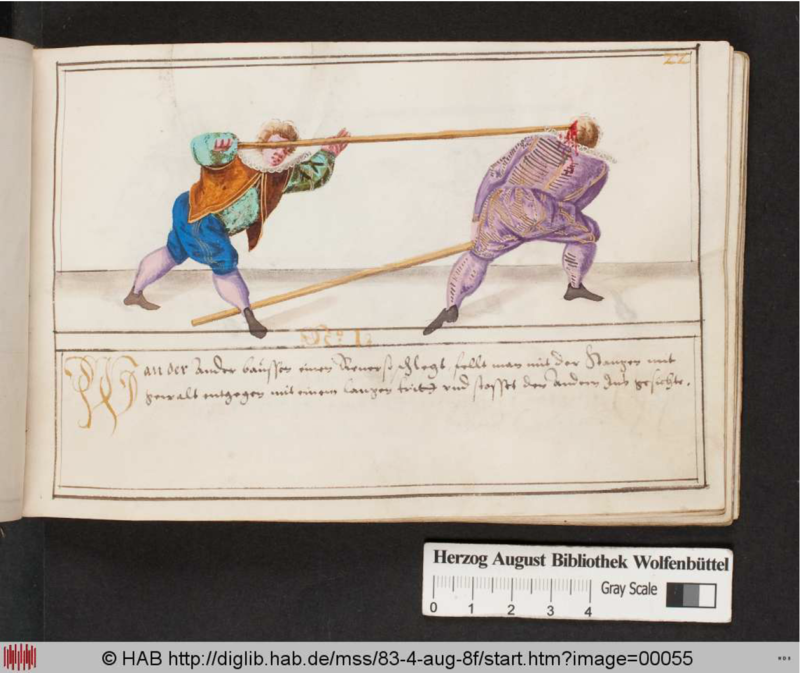 22
No 1.
Wan der Ander baussen einen Reuerso schlegt, fellt man mit der Stangen mit
gewalt entgegen mit einem langen tritt und stosset den Andern Ins gesichte.
Herzog August Bibliothek Wolfenbüttel
Gray Scale
0 1 2 3 4
© HAB http://diglib.hab.de/mss/83-4-aug-8f/start.htm?image=00055